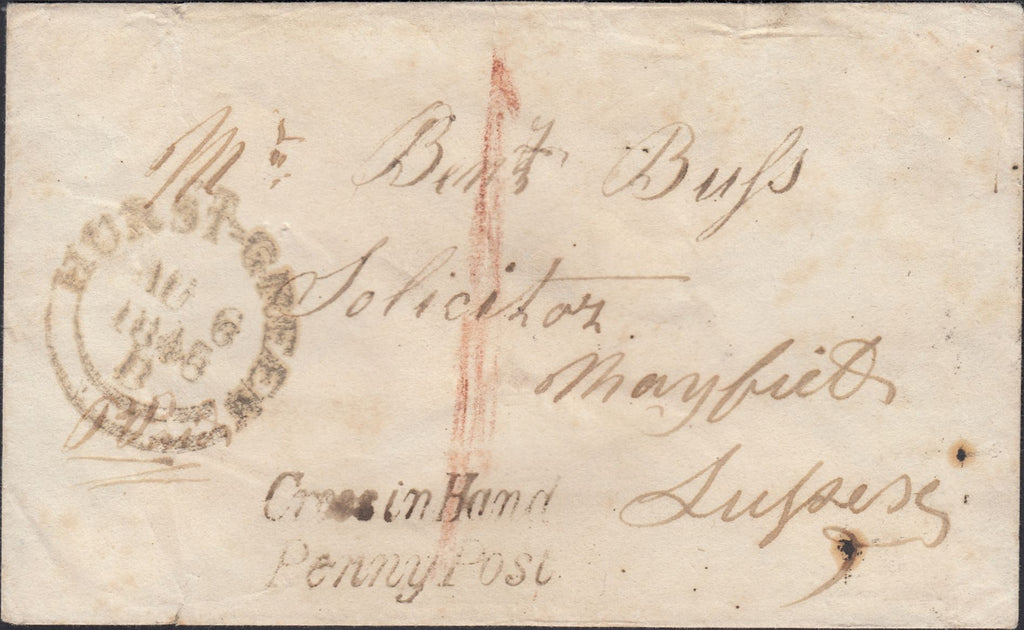 Mr Benjn Buſs
Solicitor
Mayfield
Suſsex
HURST-GREEN
AU 6
1846
B
Cross in Hand
Penny Post